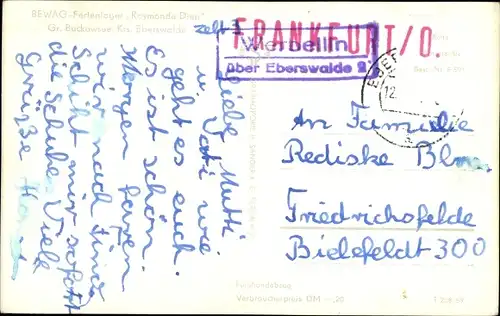 BEWAG-Ferienlager "Raymonde Dien"
Gr. Buckowsee Krs. Eberswalde
zelt 3
FRANKFURT/O.
Werbellin
über Eberswalde 2
EBER
12.
Liebe Mutti
u. Vati wie
geht es euch.
Es ist schön.
Morgen faren
wir nach
Schickt mir sofort
die Schuhe. Viele
Grüße
An Familie
Rediske Blm.
Friedrichsfelde
Bielefeldt 300
Verbraucherpreis DM -,20